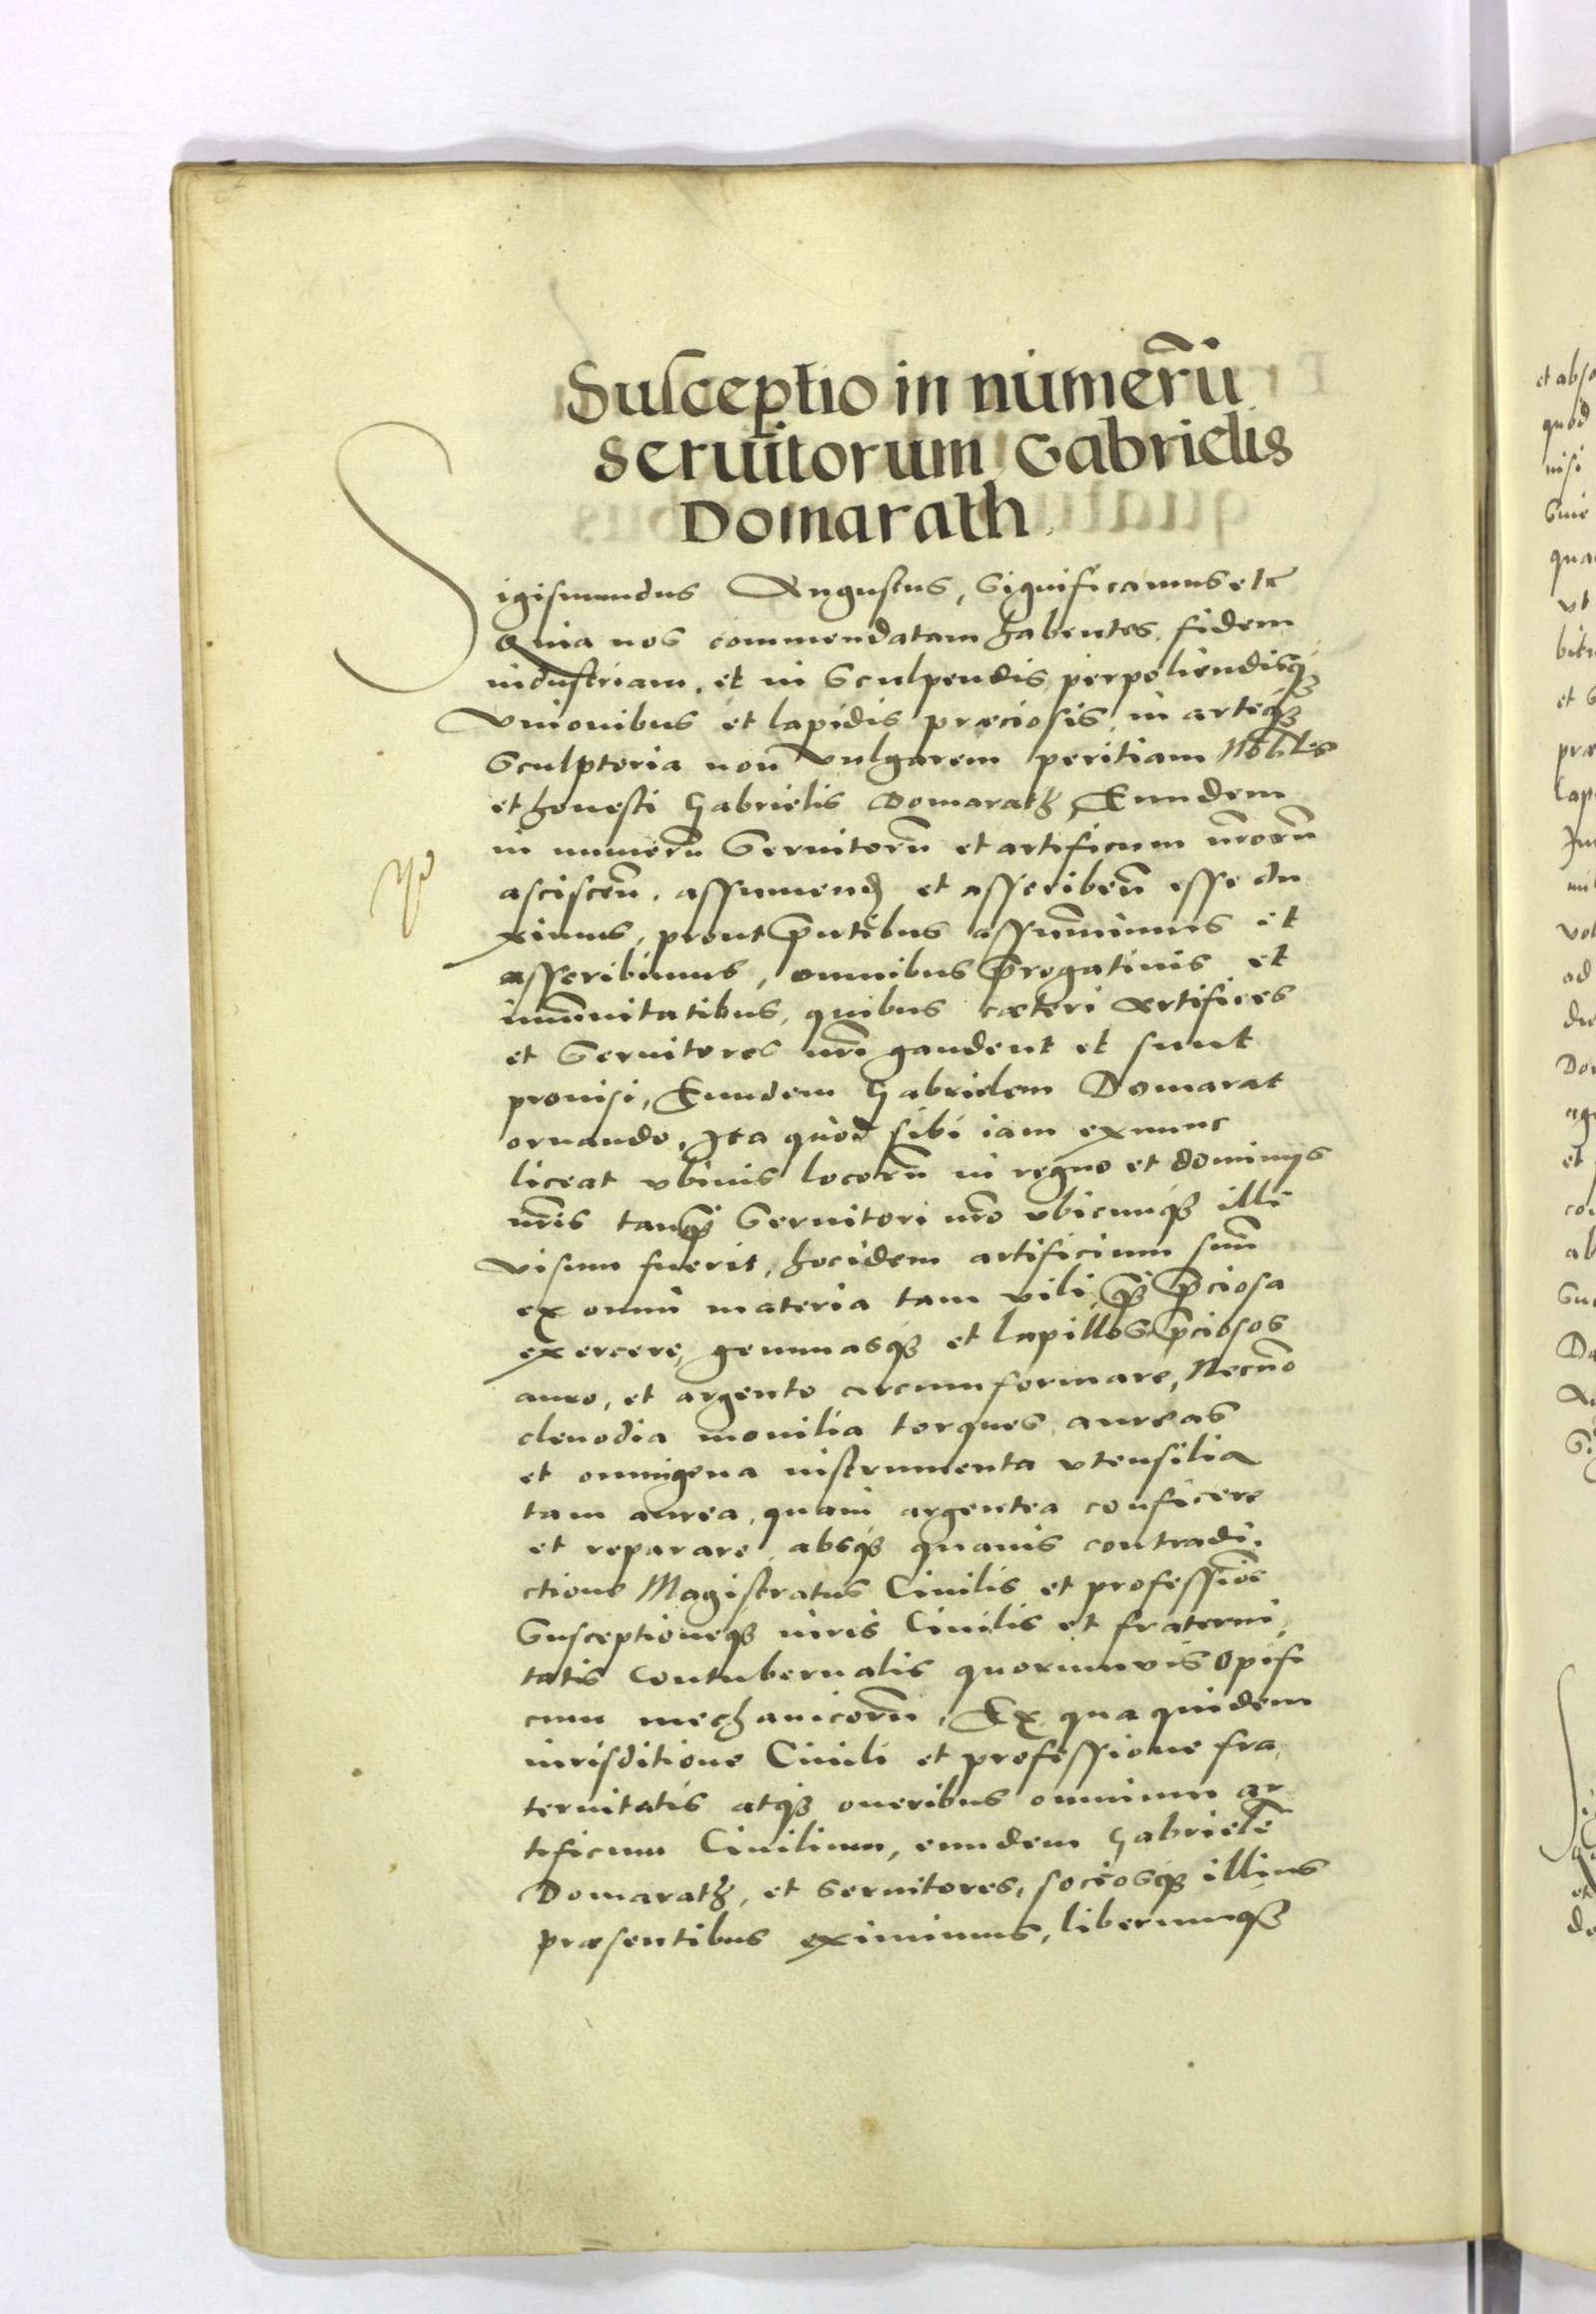 Susceptio in numerū
seruitorum Gabrielis
Domarath
Sigismundus Augustus, Significamus etc̄
Quia nos commendatam habentes fidem
industriam, et in Sculpendis perpoliendisq3
Vnionibus et lapidis præciosis, in arteq3
Sculptoria non Vulgarem peritiam Nobiles
et honesti Gabrielis Domarath, Eundem
in numerū Seruitorū et artificum nr̄orū
asciscen̄, assumend̄ et asscriben̄ esse du
ximus, prout p̄ntibus assum̄imus et
asscribimus, omnibus p̄rogatiuis et
im̄unitatibus, quibus cæteri Artifices
et Seruitores nr̄i gaudent et sunt
prouisi, Eundem Gabrielem Domarat
ornando, Ita quod sibi iam exnunc
liceat vbiuis locorū in regno et dominijs
nr̄is tanq̄3 Seruitori nr̄o vbicunq3 illi
visum fuerit, hocidem artificium suū
ex omni materia tam vili, q̄3 p̄ciosa
exercere, gemmasq3 et lapillos p̄ciosos
auro, et argento circumformare, Necnō
clenodia monilia torques aureas
et omnigena instrumenta vtensilia
tam aurea, quam argentea conficere
et reparare, absq3 quauis contradi,
ctione Magistratus Ciuilis et professiōe
Susceptioneq3 iuris Ciuilis et fraterni,
tatis Contubernalis quorumuis Opifi
cum mechanicorū, Ex qua quidem
iurisditione Ciuili et professione fra,
ternitatis atq3 oneribus omnium ar
tificum Ciuilium, eundem Gabrielē
Domarath, et seruitores, sociosq3 illius
præsentibus eximimus, liberumq3
et abso
quod
nisi